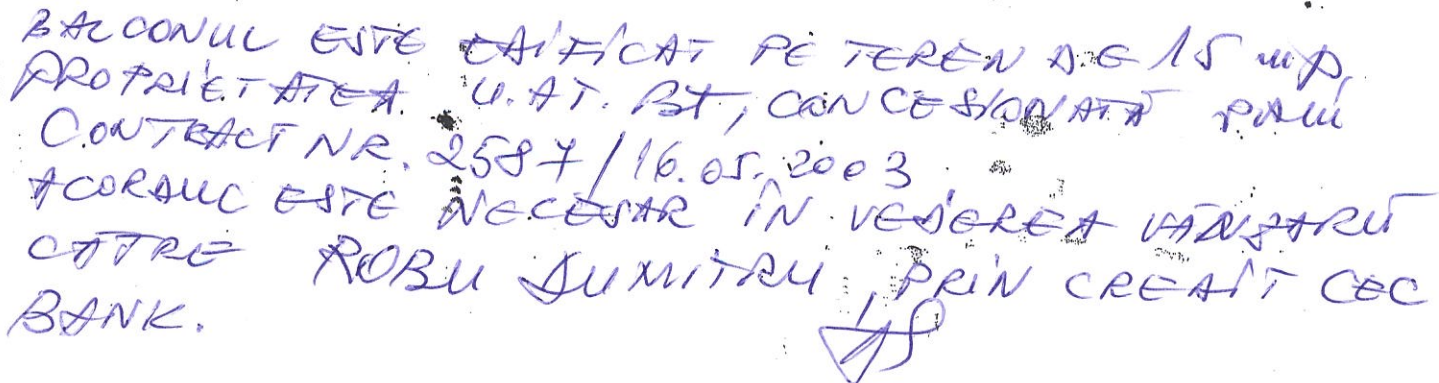 BALCONUL ESTE EDIFICAT PE TEREN DE 15 mp,
PROPRIETATEA U.AT. BT, CONCESIONATĂ PRIN
CONTRACT NR. 2587/16.05.2003.
ACORDUL ESTE NECESAR IN VEDEREA VÂNZĂRII
CĂTRE ROBU DUMITRU, PRIN CREDIT CEC
BANK.